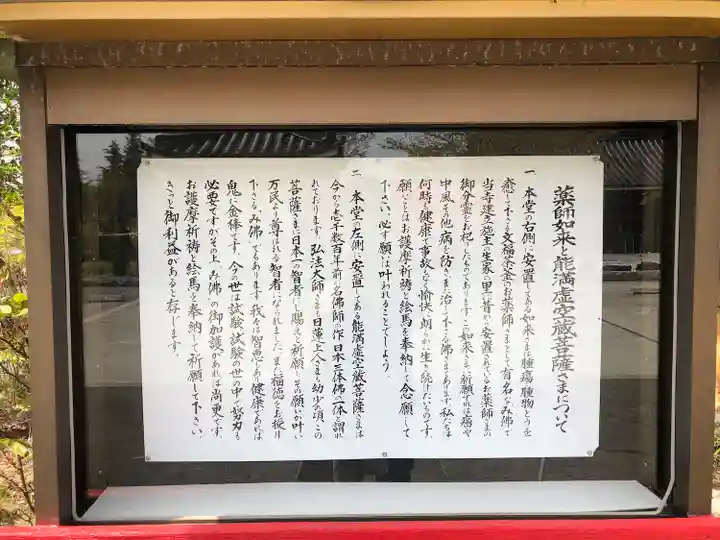 薬師如来と能満虚空蔵菩薩さまについて
一 本堂の右側に安置してある如来さまは腫瘍腫物とうを
癒して下さる文福茶釜のお薬師さまとして有名なみ佛で
当寺建立施主の生家の里に昔から安置されているお薬師さまの
御分霊をお祀したものであります この如来さまに祈願すれば癌や
中風その他病を防ぎまた治して下さる佛でまあります 私たちは
何時も健康で事故もなく愉快で朗らかに生き続けたいものです、
願いごとはお護摩祈祷と絵馬を奉納して念願して
下さい、必ず願いは叶われることでしょう。
二 本堂の左側に安置してある能満虚空蔵菩薩さまは
今から壱千数百年前の名佛師の作 日本三体佛の一体と謂わ
れております、弘法大師さまも日蓮上人さまも幼少の頃この
菩薩さまに日本一の智者にし賜えと祈願し その願いが叶い
万民より尊ばれる智者になられました また福徳をお授け
下さる、み佛、でもあります 我々は智恵があり健康であれば
鬼に金棒です、今の世は試験試験の世の中で努力も
必要ですがその上、み佛、の御加護があれば尚更です、
お護摩祈祷と絵馬を奉納して祈願して下さい、
きっと御利益があると存じます。